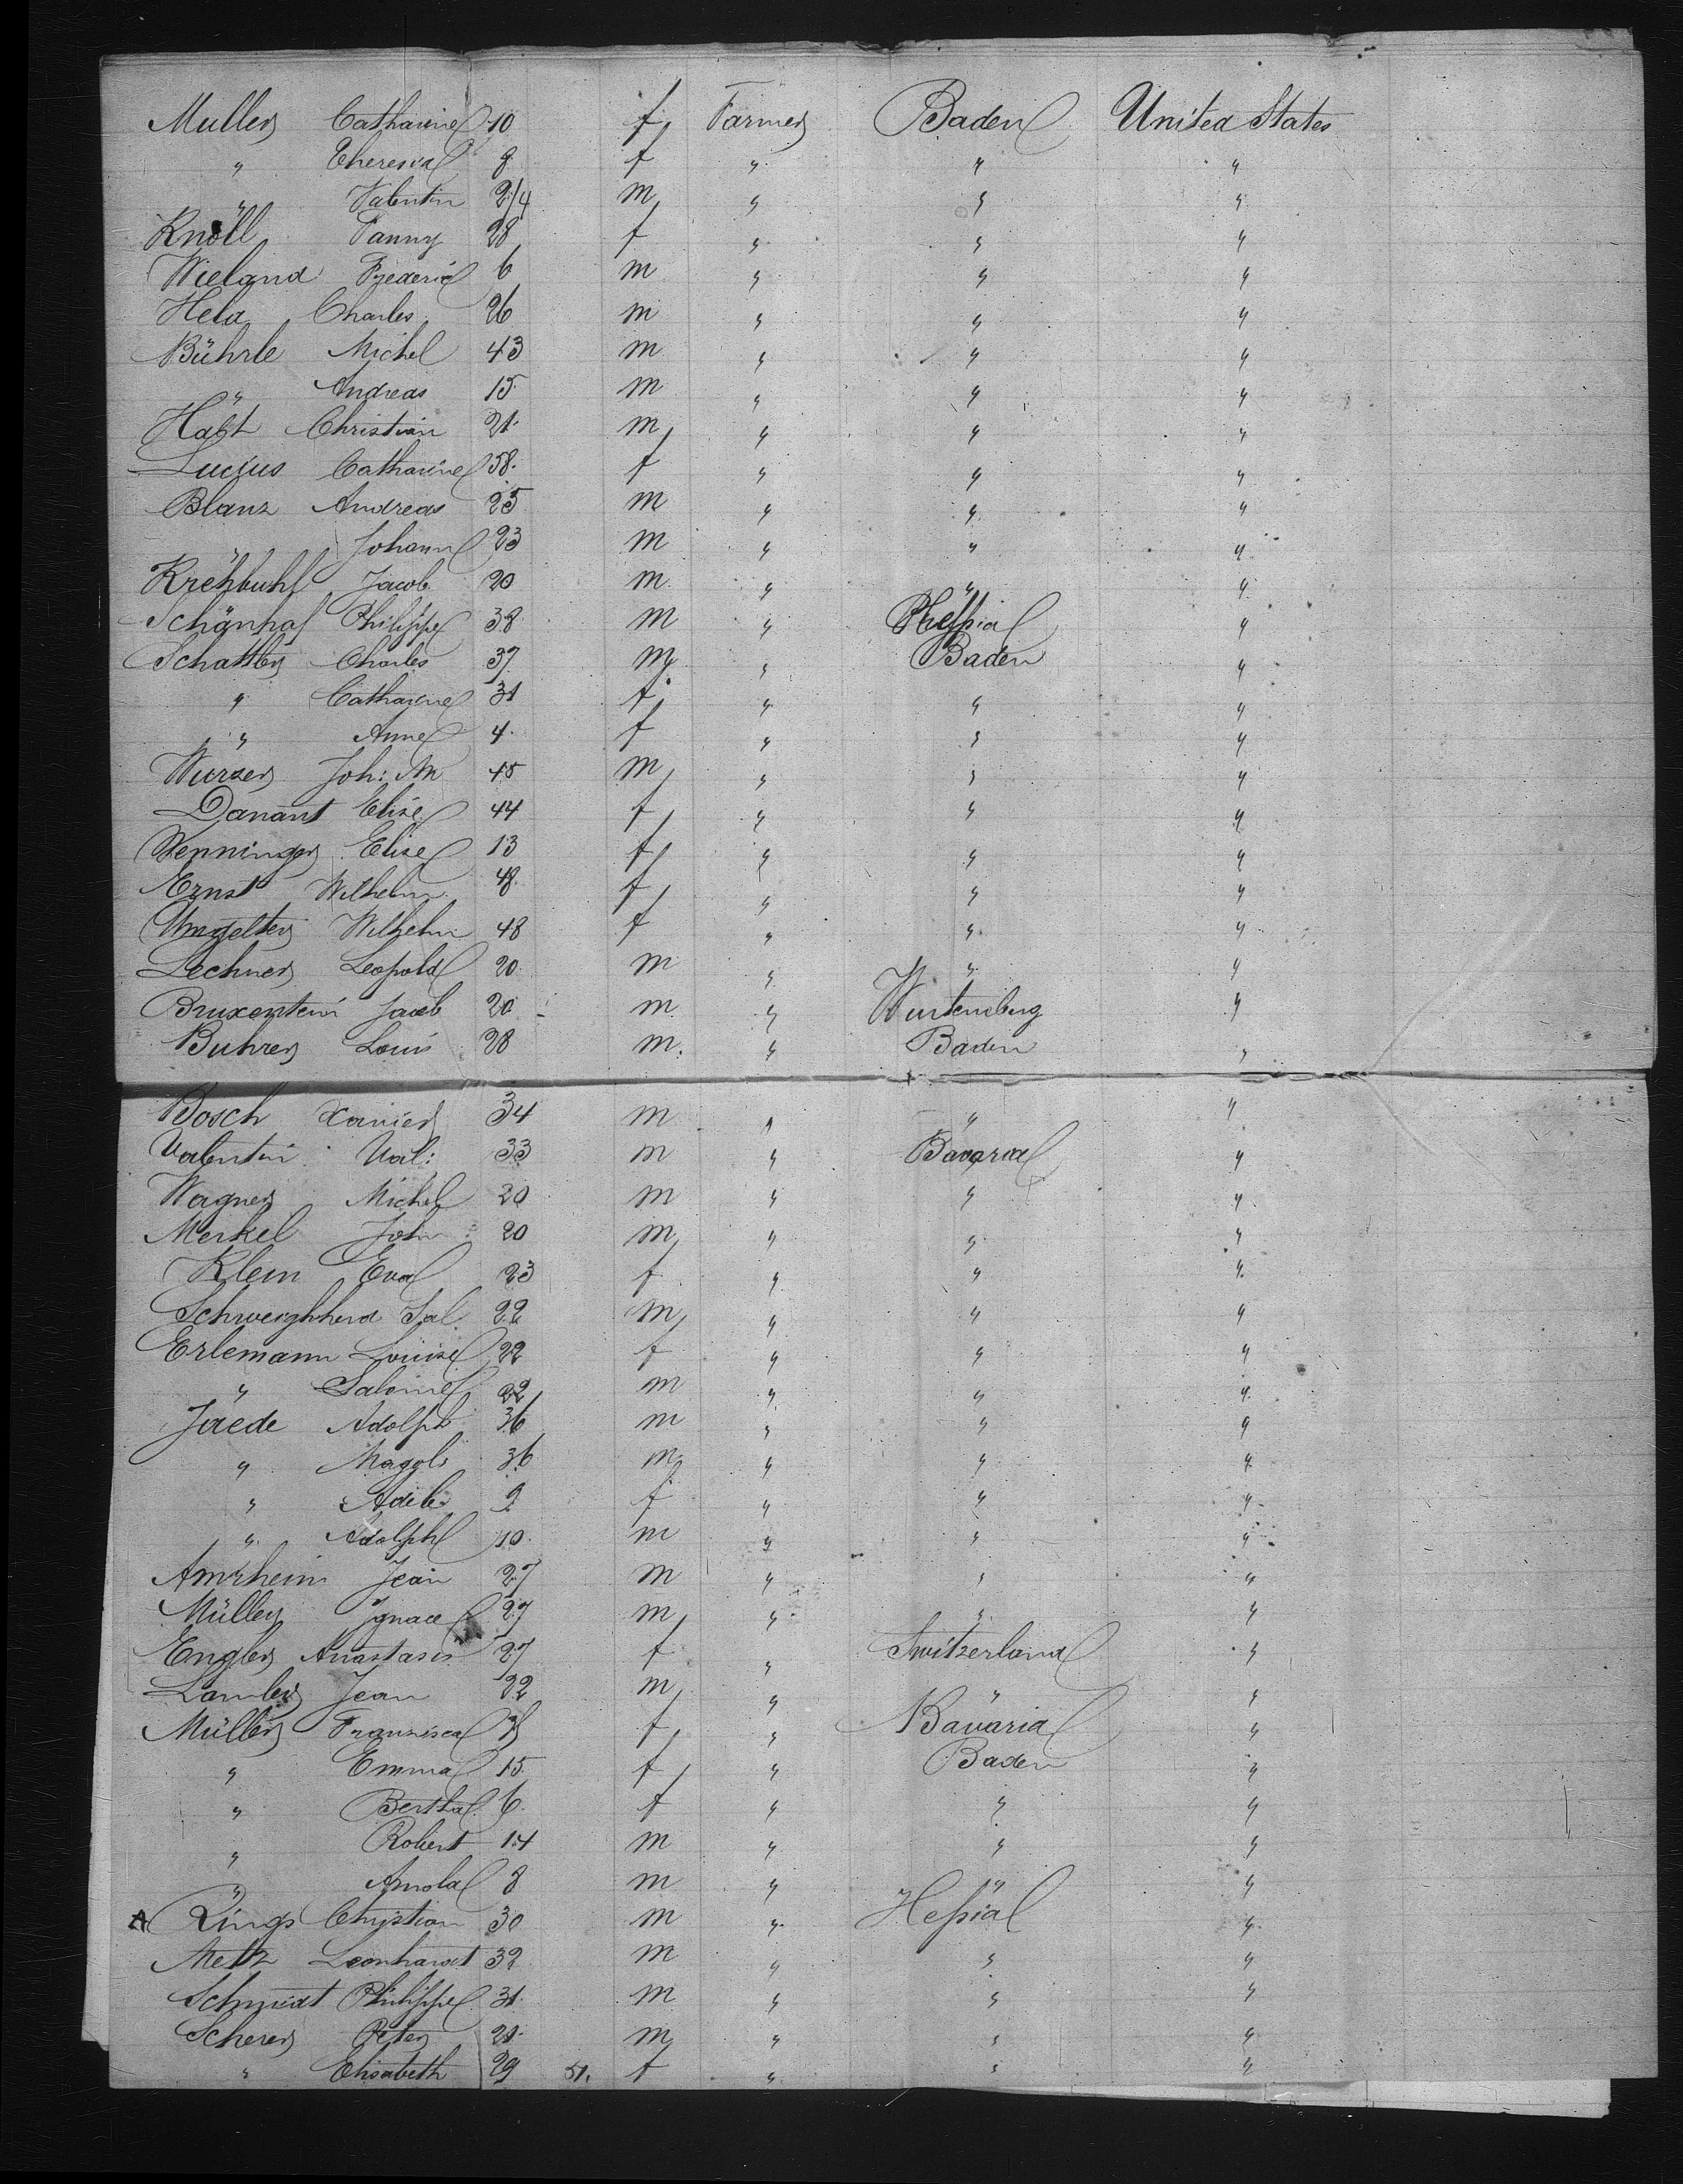 Muller Catharine 10 f Farmer Baden United States
" Theresia 8 f " " "
" Valentin 2/4 m " " "
Knöll Fanny 28 f " " "
Wieland Frederic 6 m " " "
Held Charles 26 m " " "
Bührle Michel 43 m " " "
" Andreas 15 m " " "
Christian 21 m " " "
Lucius Catharine 58 f " " "
Blanz Andreas 25 m " " "
" Johann 23 m " " "
Krehbuhl Jacob 20 m " " "
Schönhof Philippe 38 m " Hessia "
Schattler Charles 37 m " Baden "
" Catharine 31 f " " "
" Anne 4 f " " "
Wurzer Joh: M 45 m " " "
Danant Elise 44 f " " "
Wenninger Elise 13 f " " "
Ernst Wilhelm 48 f " " "
Umgelter Wilhelm 48 f " " "
Lechner Leopold 20 m " " "
Jacob 20 m " Wurtemberg "
Buhrer Louis 28 m " Baden "
Bosch Xavier 34 m " " "
Valentin Val: 33 m " Bavaria "
Wagner Michel 20 m " " "
Merkel John 20 m " " "
Klein Eva 23 f " " "
Sal. 22 m " " "
Erlemann Louise 22 f " " "
" Salome 22 m " " "
Jaede Adolph 36 m " " "
" Magdl 36 m " " "
" Adele 9 f " " "
" Adolph 10 m " " "
Amrhein Jean 27 m " " "
Müller Ignace 27 m " " "
Engler Anastasie 27 f " Switzerland "
Lambert Jean 22 m " " "
Müller Franzisca f " Bavaria "
" Emma 15 f " Baden "
" Bertha 6 f " " "
" Robert 14 m " " "
" Arnold 8 m " " "
A Rings Christian 30 m " Hessia "
Metz Leonhardt 32 m " " "
Schmidt Philippe 31 m " " "
Scherer Peter 21 m " " "
" Elisabeth 29 51. f " " "